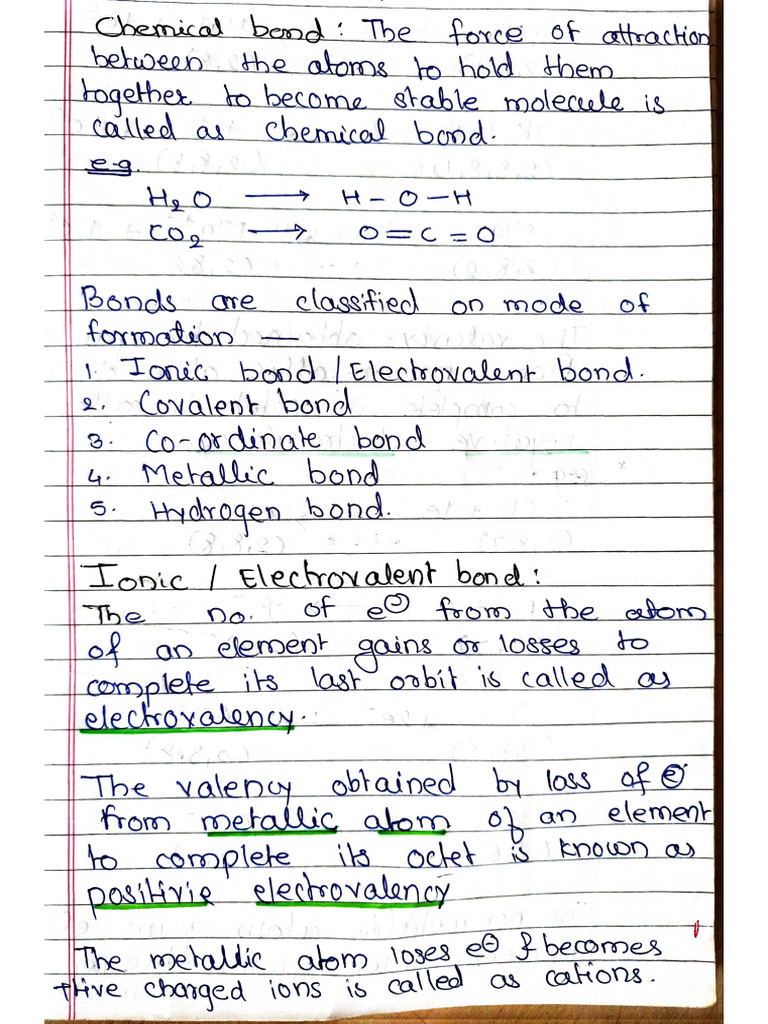 Chemical bond : The force of attraction
between the atoms to hold them
together to become stable molecule is
called as chemical bond.
e.g.
H₂O ⟶ H – O – H
CO₂ ⟶ O = C = O
Bonds are classified on mode of
formation —
1. Ionic bond / Electrovalent bond.
2. Covalent bond
3. Co-ordinate bond
4. Metallic bond
5. Hydrogen bond.
Ionic / Electrovalent bond :
The no. of e⊖ from the atom
of an element gains or losses to
complete its last orbit is called as
electrovalency.
The valency obtained by loss of e⊖
from metallic atom of an element
to complete its octet is known as
positivie electrovalency
The metallic atom loses e⊖ & becomes
+tive charged ions is called as cations.